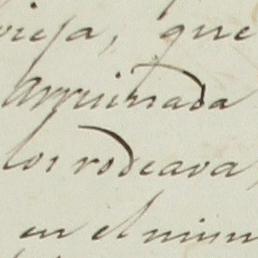 vieja, que
arruinada
los rodeava,
en el mism